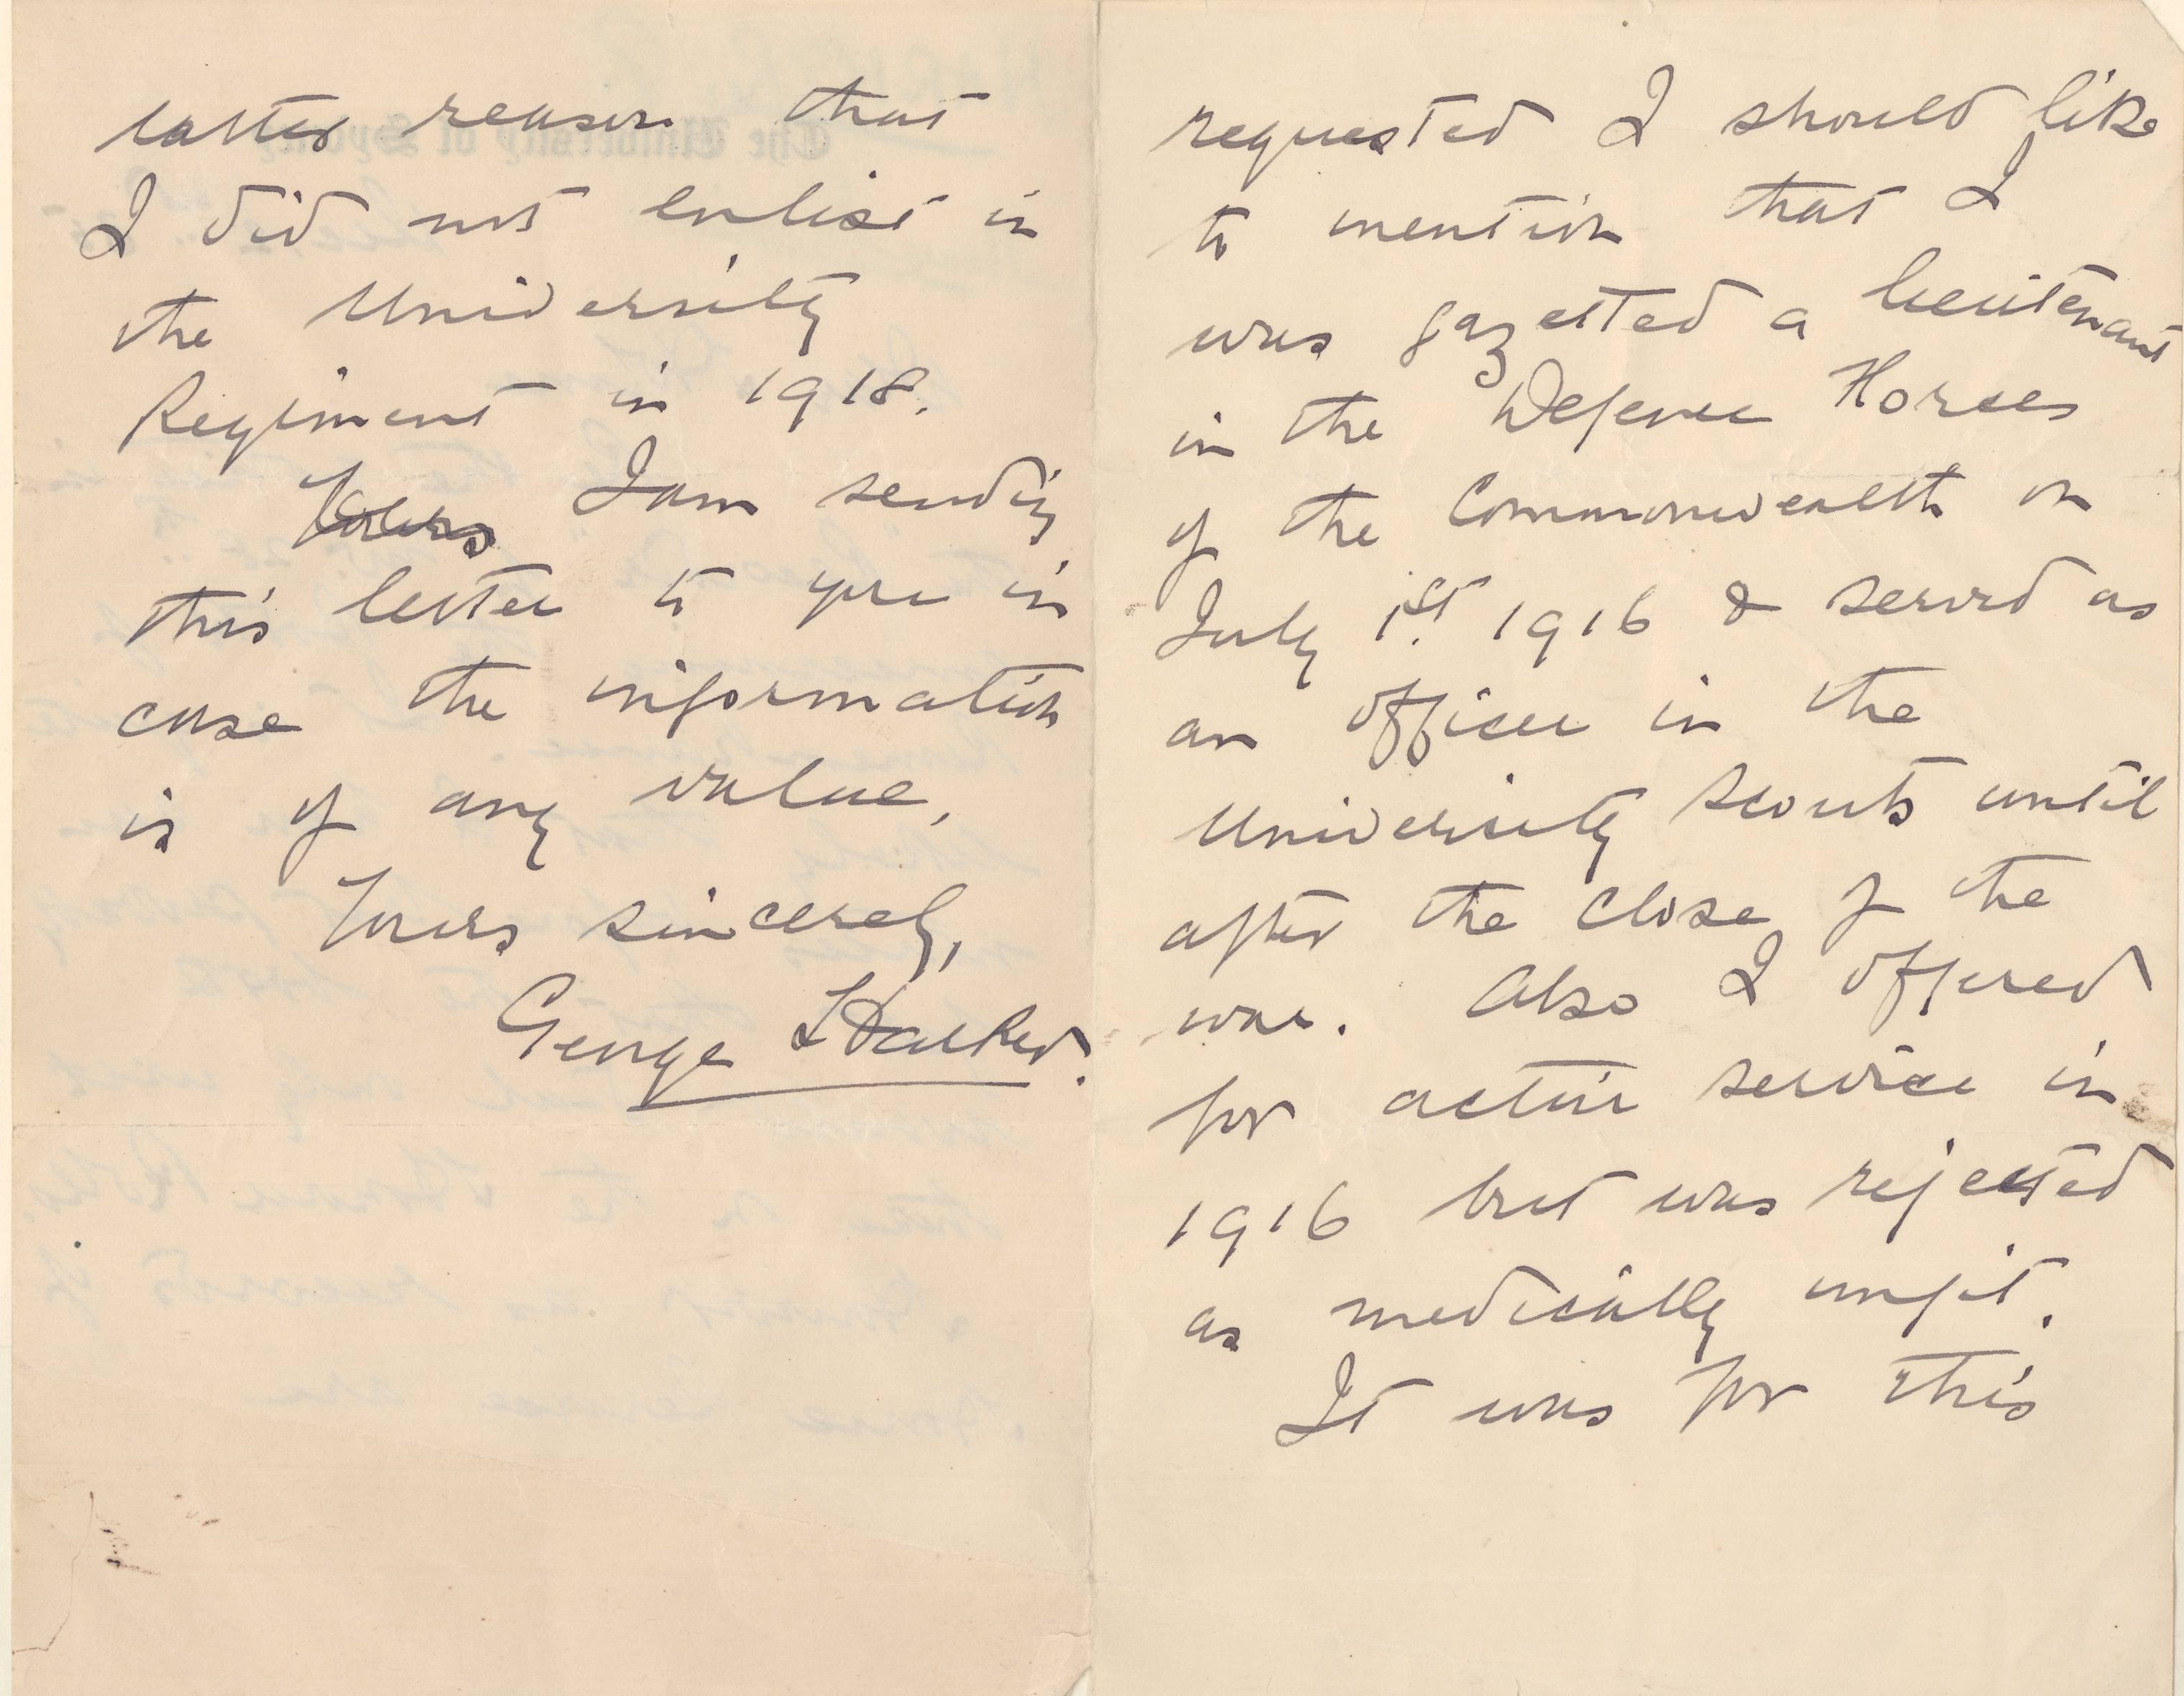 requested I should like
to mention that I
was gazetted a lieutenant
in the Defence Forces
of the Commonwealth on
July 1st. 1916 & served as
an officer in the
University Scouts until
after the close of the
war. Also I offered
for active service in
1916 but was rejected
as medically unfit.
It was for this
latter reason that
I did not enlist in
the University
Regiment in 1918.
Yours I am sending
this letter to you in
case the information
is of any value,
Yours sincerely,
George Harker.